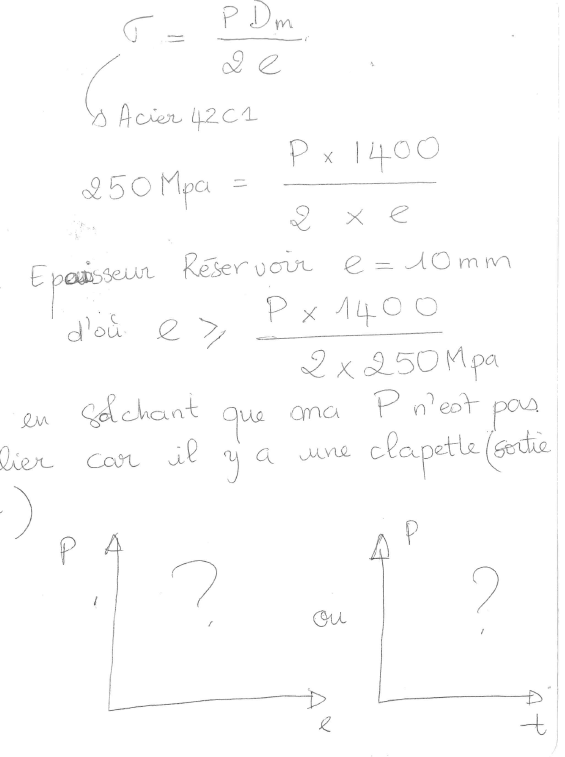 σ = P Dm / 2 e
Acier 42C1
250 Mpa = P x 1400 / 2 x e
Epaisseur Réservoir e = 10mm
d'où e ⩾ P x 1400 / 2 x 250 Mpa
en sachant que ma P n'est pas
lier car il y a une clapette (sortie
)
P ? ou P ?
e t